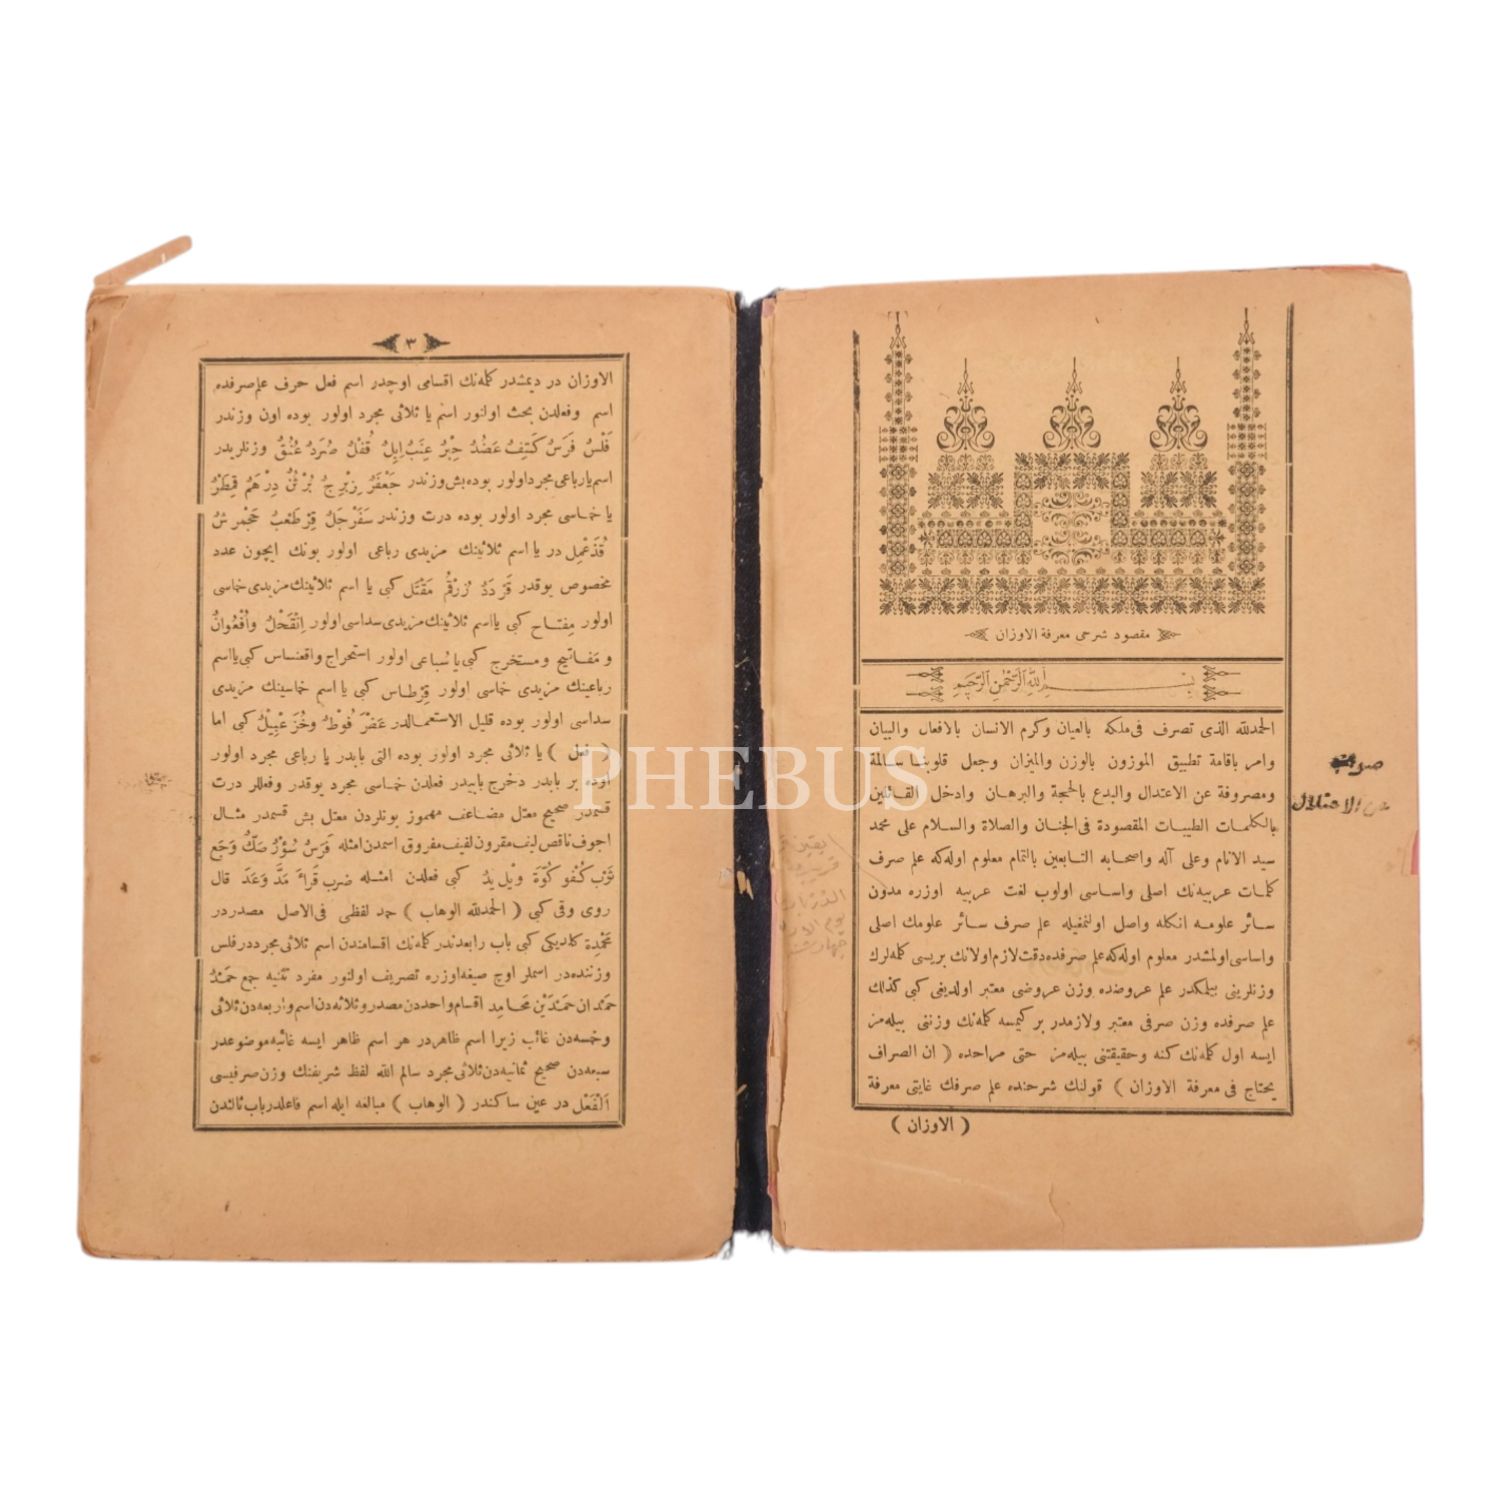 مقصود شرحی معرفة الاوزان
بسم الله الرحمن الرحيم
الحمدلله الذی تصرف فی ملکه بالعیان وکرم الانسان بالافعال والبیان
وامر باقامة تطبیق الموزون بالوزن والمیزان وجعل قلوبنا سالمة
ومصروفة عن الاعتدال والبدع بالحجة والبرهان وادخل القائلین
بالکلمات الطیبات المقصودة فی الجنان والصلاة والسلام علی محمد
سید الانام وعلی آله واصحابه التابعین بالتمام معلوم اوله که علم صرف
کلمات عربیه نك اصلی واساسی اولوب لغت عربیه اوزره مدون
سائر علومه انکله واصل اولنمغیله علم صرف سائر علومك اصلی
واساسی اولمشدر معلوم اوله که علم صرفده دقت لازم اولانك بریسی کلمه لرك
وزنلرینی بیلمکدر علم عروضده وزن عروضی معتبر اولدیغی کبی کذلك
علم صرفده وزن صرفی معتبر ولازمدر بر کیمسه کلمه نك وزننی بیله مز
ایسه اول کلمه نك کنه وحقیقتنی بیله مز حتی مراحده ( ان الصراف
یحتاج فی معرفة الاوزان ) قولنك شرحنده علم صرفك غایتی معرفة
( الاوزان )
صوابه
عن الاعتلال
٣
الاوزان در دیمشدر کلمه نك اقسامی اوچدر اسم فعل حرف علم صرفده
اسم وفعلدن بحث اولنور اسم یا ثلاثی مجرد اولور بوده اون وزندر
فَلْسٌ فَرَسٌ کَتِفٌ عَضُدٌ حِبْرٌ عِنَبٌ اِبِلٌ قُفْلٌ صُرَدٌ عُنُقٌ وزنلریدر
اسم یا رباعی مجرد اولور بوده بش وزندر جَعْفَرٌ زِبْرِجٌ بُرْثُنٌ دِرْهَمٌ قِمَطْرٌ
یا خماسی مجرد اولور بوده درت وزندر سَفَرْجَلٌ قِرْطَعْبٌ جَحْمَرِشٌ
قُذَعْمِل در یا اسم ثلاثینك مزیدی رباعی اولور بونك ایچون عدد
مخصوص یوقدر قَرْدَدٌ زُرْقُمٌ مَقْتَل کبی یا اسم ثلاثینك مزیدی خماسی
اولور مِفتاح کبی یا اسم ثلاثینك مزیدی سداسی اولور اِنْقَحْلٌ واُفْعُوانٌ
و مَفاتیح و مستخرج کبی یا سُباعی اولور استخراج واقعنساس کبی یا اسم
رباعینك مزیدی خماسی اولور قِرْطاس کبی یا اسم خماسینك مزیدی
سداسی اولور بوده قلیل الاستعمالدر عَضْرَ فُوطٌ وخُزَعْبِیْلٌ کبی اما
( فعل ) یا ثلاثی مجرد اولور بوده التی بابدر یا رباعی مجرد اولور
بوده بر بابدر دخرج بابیدر فعلدن خماسی مجرد یوقدر وفعللر درت
قسمدر صحیح معتل مضاعف مهموز بونلردن معتل بش قسمدر مثال
اجوف ناقص لفیف مقرون لفیف مفروق اسمدن امثله فَرَسٌ سُؤْرٌ صَكٌّ وَجَع
ثَوْب کُفُو کُوَّة وَیْل یَدٌ کبی فعلدن امثله ضرب قَراءَ مَدَّ وَعَدَ قال
روی وقی کبی ( الحمدلله الوهاب ) حمد لفظی فی الاصل مصدر در
تَحْمِدَة کلدیکی کبی باب رابعدندر کلمه نك اقسامندن اسم ثلاثی مجرددر فلس
وزننده در اسملر اوچ صیغه اوزره تصریف اولنور مفرد تثنیه جمع حَمْدٌ
حَمْدان حَمْدَیْن مَحامِد اقسام واحددن مصدر وثلاثه دن اسم واربعه دن ثلاثی
وخمسه دن غائب زیرا اسم ظاهردر هر اسم ظاهر ایسه غائبه موضوعدر
سبعه دن صحیح ثمانیه دن ثلاثی مجرد سالم الله لفظ شریفنك وزن صرفیسی
اَلْفَعْل در عین ساکندر ( الوهاب ) مبالغه ایله اسم فاعلدر باب ثالثدن
PHEBUS